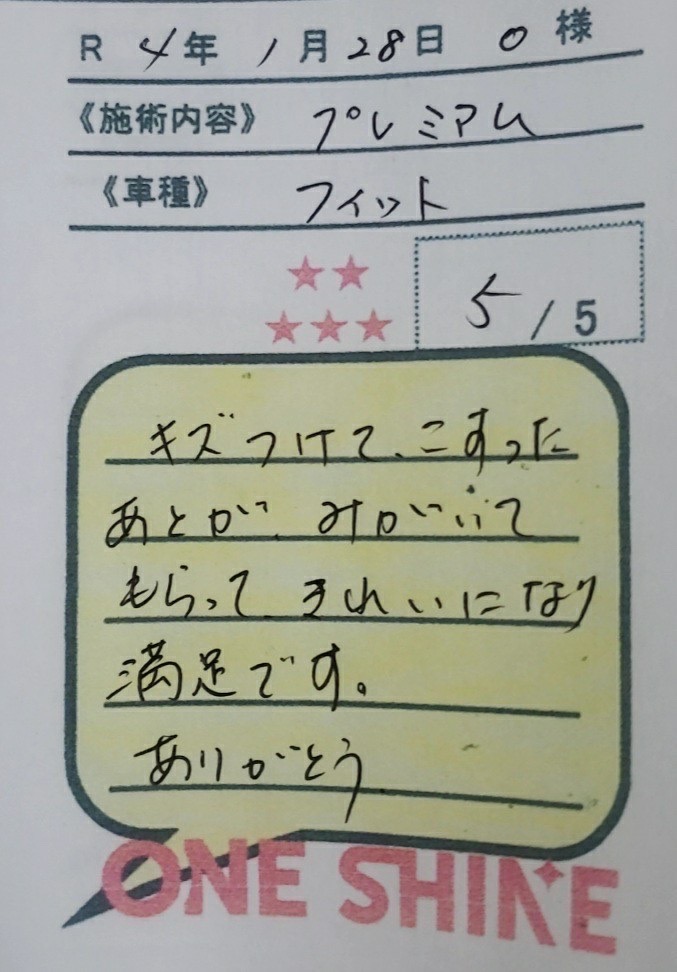 R 4年 1月28日 O 様
《施術内容》 プレミアム
《車種》 フィット
5/5
キズつけて、こすった
あとが、みがいて
もらって、きれいになり
満足です。
ありがとう
ONE SHINE